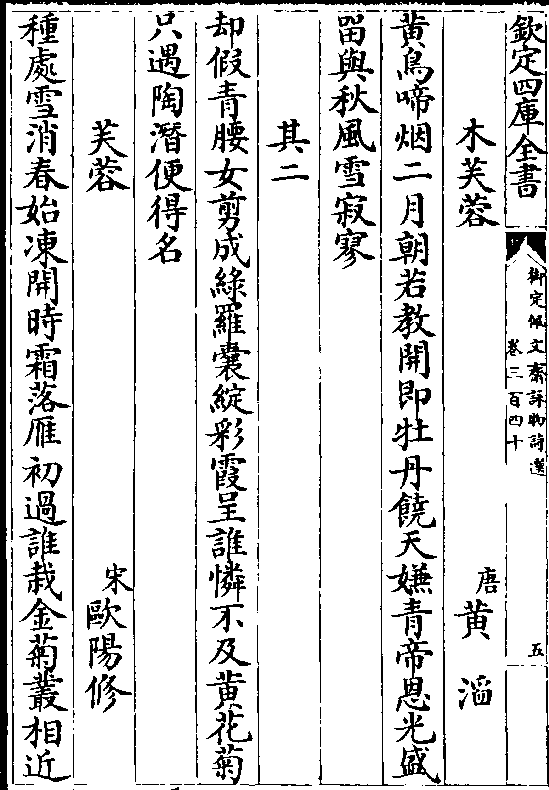 欽定四庫全書
御定佩文齋詠物詩選
卷三百四十
五
木芙蓉 唐 黄滔
黄鳥啼烟二月朝若教開即牡丹饒天嫌青帝恩光盛
留與秋風雪寂寥
其二
却假青腰女剪成綠羅囊綻彩霞呈誰憐不及黄花菊
只遇陶潛便得名
芙蓉 宋 歐陽修
種處雪消春始凍開時霜落雁初過誰栽金菊叢相近